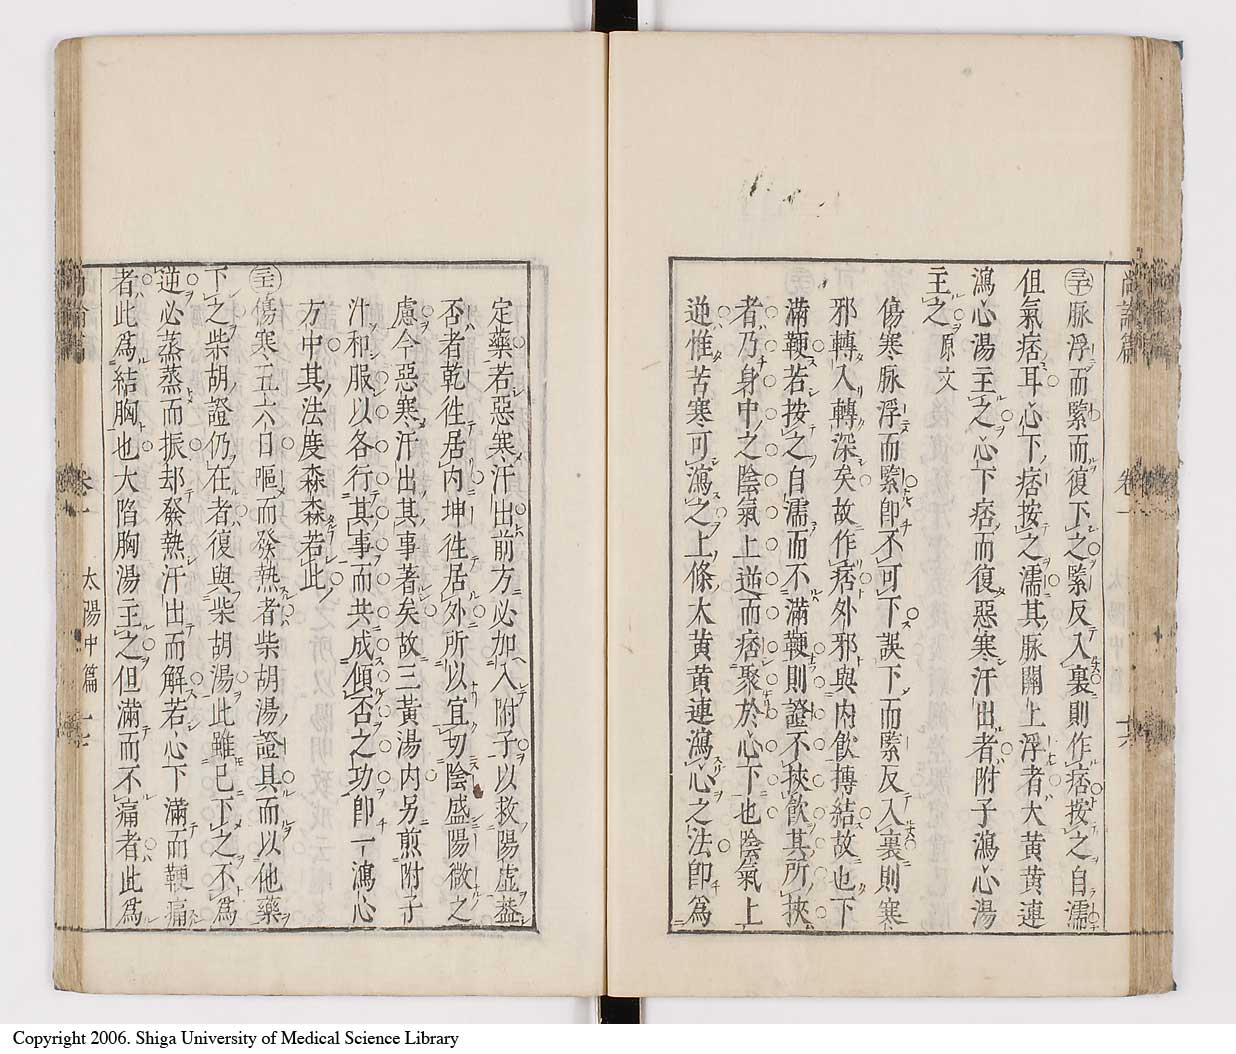 尚論篇 卷一
脉浮而緊而復下之緊反入裏則作痞按之自濡
但氣痞耳心下痞按之濡其脉關上浮者大黃黃連
瀉心湯主之心下痞而復惡寒汗出者附子瀉心湯
主之原文
傷寒脉浮而緊卽不可下誤下而緊反入裏則寒
邪轉入轉深矣故作痞外邪與內飮摶結故也下
滿鞕若按之自濡而不滿鞕則證不挾飮其所挾
者乃身中之陰氣上逆而痞聚於心下也陰氣上
逆惟苦寒可瀉之上條大黃黃連瀉心之法卽爲
定藥若惡寒汗出前方必加入附子以救陽虛葢
否者乾徃居內坤徃居外所以宜切陰盛陽微之
慮今惡寒汗出其事著矣故三黃湯內另煎附子
汁和服以各行其事而共成傾否之功卽一瀉心
方中其法度森森若此
傷寒五六日嘔而發熱者柴胡湯證具而以他藥
下之柴胡證仍在者復與柴胡湯此雖已下之不爲
逆必蒸蒸而振却發熱汗出而解若心下滿而鞕痛
者此爲結胸也大陷胸湯主之但滿而不痛者此爲
太陽中篇 十七
Copyright 2006. Shiga University of Medical Science Library